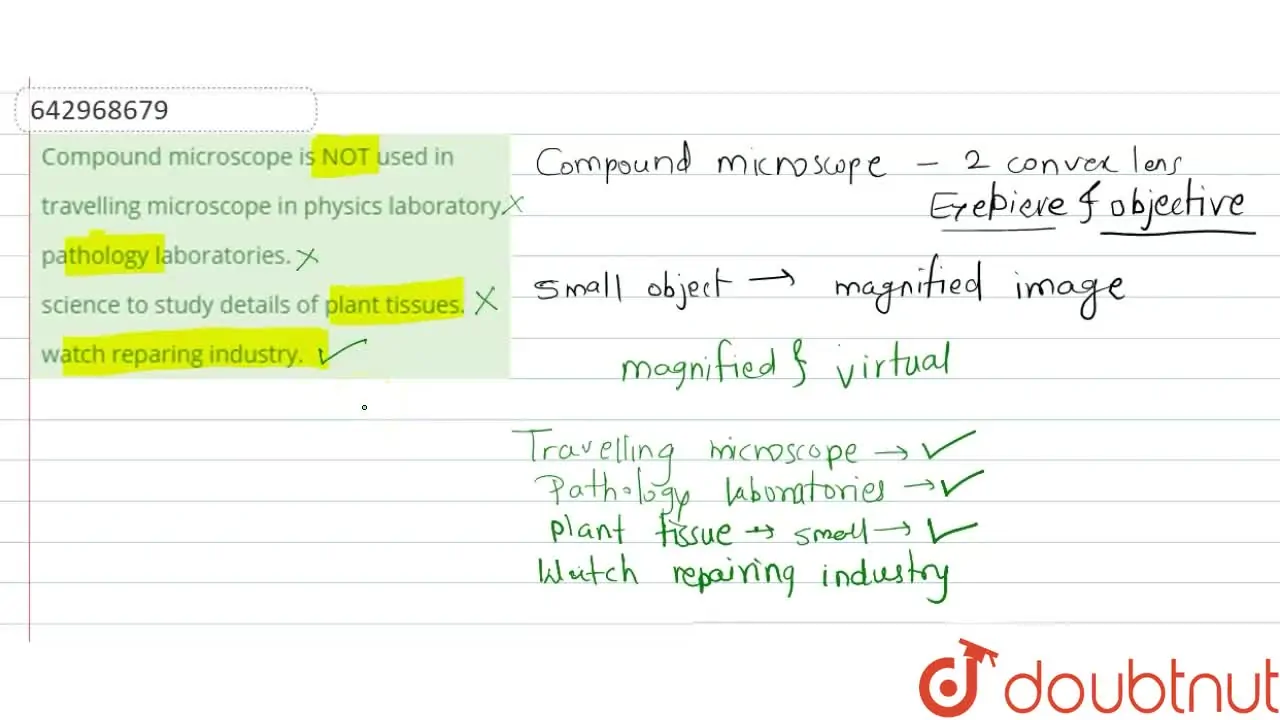 642968679
Compound microscope is NOT used in
travelling microscope in physics laboratory.
pathology laboratories.
science to study details of plant tissues.
watch reparing industry.
Compound microscope - 2 convex lens
Eyepiece & objective
small object → magnified image
magnified & virtual
Travelling microscope → ✓
Pathology laboratories → ✓
plant tissue → small → ✓
Watch repairing industry
doubtnut